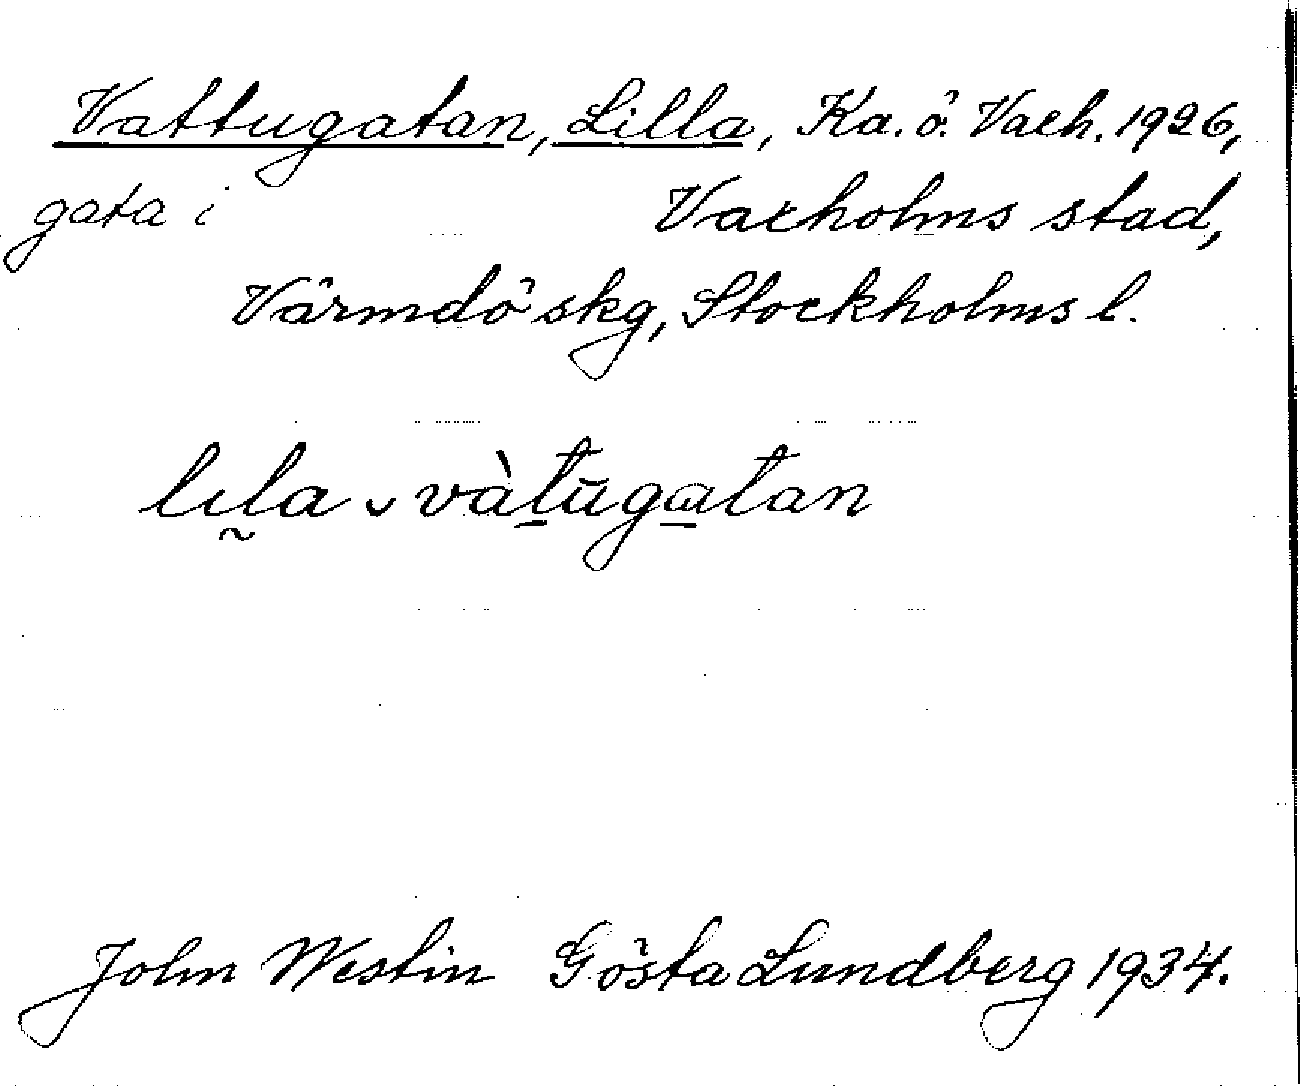 Vattugatan, Lilla, Ka. ö. Vaxh. 1926,
gata i Vaxholms stad,
Värmdö skg, Stockholms l.
lıl̰a ˬ vàt̲ŭgɑ̲tan
John Westin Gösta Lundberg 1934.